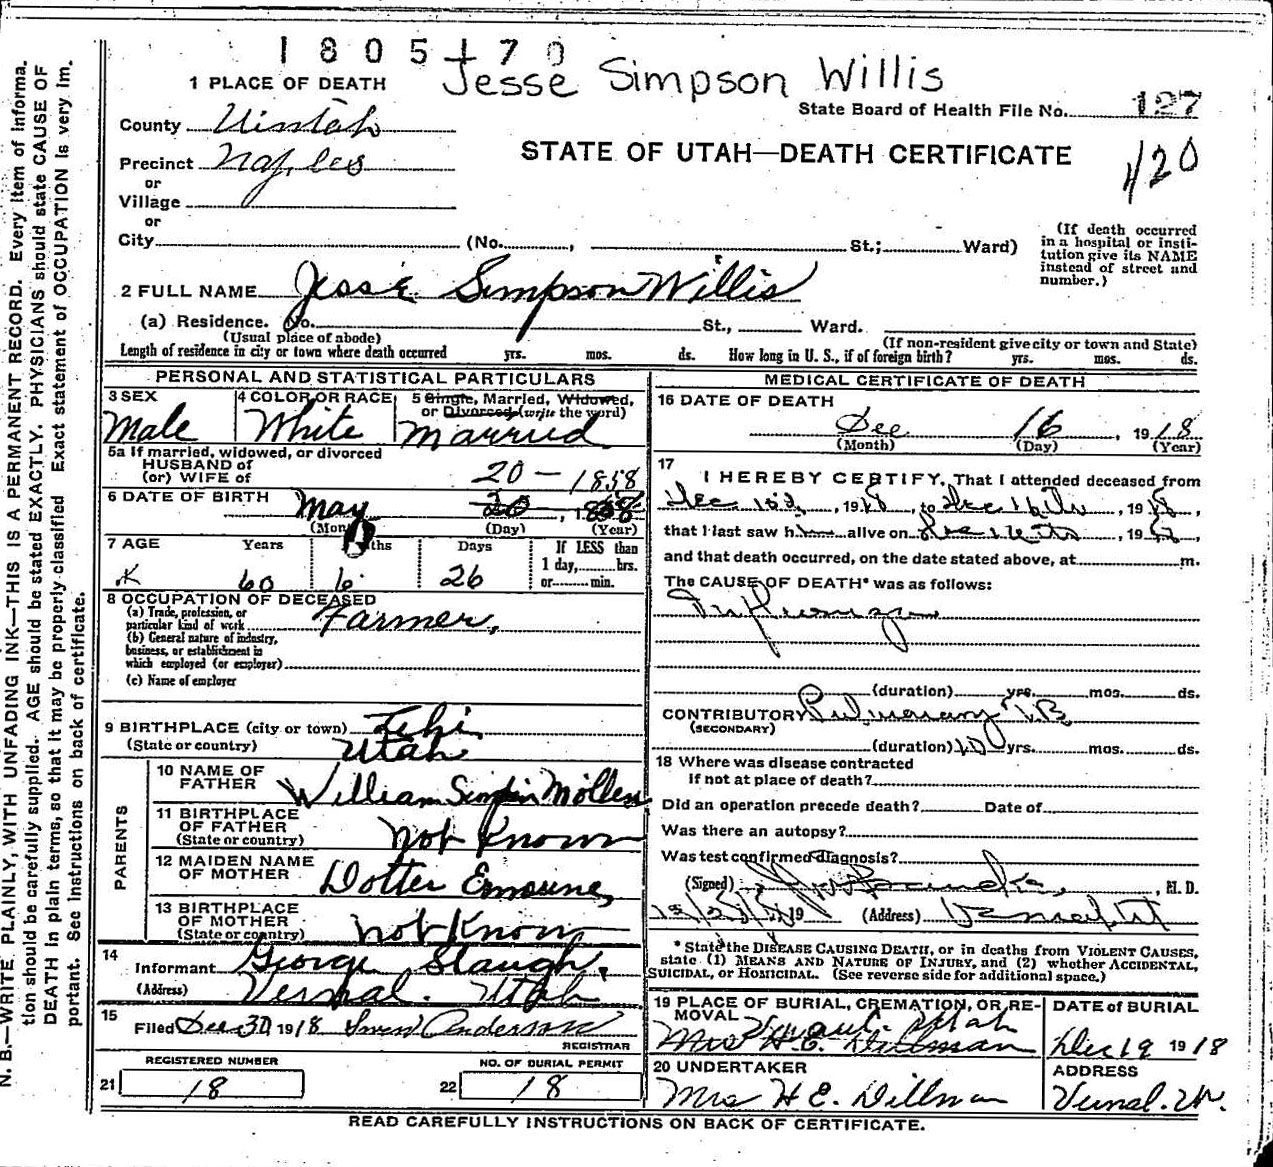 1 8 0 5 1 7 0
Jesse Simpson Willis
1 PLACE OF DEATH
State Board of Health File No. 127
County Uintah
STATE OF UTAH—DEATH CERTIFICATE
420
Precinct Naples
or
Village
or
City (No. , St.; Ward)
(If death occurred
in a hospital or insti-
tution give its NAME
instead of street and
number.)
2 FULL NAME Jesse Simpson Willis
(a) Residence. No. St., Ward.
(Usual place of abode) (If non-resident give city or town and State)
Length of residence in city or town where death occurred yrs. mos. ds. How long in U. S., if of foreign birth? yrs. mos. ds.
PERSONAL AND STATISTICAL PARTICULARS
3 SEX
Male
4 COLOR OR RACE
White
5 Single, Married, Widowed,
or Divorced (write the word)
Married
5a If married, widowed, or divorced
HUSBAND of
(or) WIFE of
20 — 1858
6 DATE OF BIRTH May 20, 1858
(Month) (Day) (Year)
7 AGE Years Months Days If LESS than
1 day, hrs.
or min.
60 6 26
8 OCCUPATION OF DECEASED
(a) Trade, profession, or
particular kind of work Farmer,
(b) General nature of industry,
business, or establishment in
which employed (or employer)
(c) Name of employer
9 BIRTHPLACE (city or town) Lehi
(State or country) Utah
PARENTS
10 NAME OF
FATHER William Simpson
11 BIRTHPLACE
OF FATHER
(State or country) Not Known
12 MAIDEN NAME
OF MOTHER
13 BIRTHPLACE
OF MOTHER
(State or country) Not Known
14
Informant George Slaugh,
(Address) Vernal. Utah
15
Filed Dec 30 1918 Anderson
REGISTRAR
REGISTERED NUMBER
21 18
NO. OF BURIAL PERMIT
22 18
MEDICAL CERTIFICATE OF DEATH
16 DATE OF DEATH
Dec 16, 1918
(Month) (Day) (Year)
17
I HEREBY CERTIFY, That I attended deceased from
Dec , 1918, to Dec 16th, 1918,
that I last saw him alive on , 19 ,
and that death occurred, on the date stated above, at m.
The CAUSE OF DEATH* was as follows:
Influenza
(duration) yrs. mos. ds.
CONTRIBUTORY Pulmonary TB
(SECONDARY)
(duration) 10 yrs. mos. ds.
18 Where was disease contracted
if not at place of death?
Did an operation precede death? Date of
Was there an autopsy?
Was test confirmed diagnosis?
(Signed) , M. D.
19 (Address) Vernal Ut
* State the DISEASE CAUSING DEATH, or in deaths from VIOLENT CAUSES,
state (1) MEANS AND NATURE OF INJURY, and (2) whether ACCIDENTAL,
SUICIDAL, or HOMICIDAL. (See reverse side for additional space.)
19 PLACE OF BURIAL, CREMATION, OR RE-
MOVAL Vernal. Utah
Mrs H. E. Dillman
DATE of BURIAL
Dec 19 1918
20 UNDERTAKER
Mrs H E. Dillman
ADDRESS
Vernal. Ut.
READ CAREFULLY INSTRUCTIONS ON BACK OF CERTIFICATE.
N. B.—WRITE PLAINLY, WITH UNFADING INK—THIS IS A PERMANENT RECORD. Every item of informa-
tion should be carefully supplied. AGE should be stated EXACTLY. PHYSICIANS should state CAUSE OF
DEATH in plain terms, so that it may be properly classified. Exact statement of OCCUPATION is very im-
portant. See instructions on back of certificate.